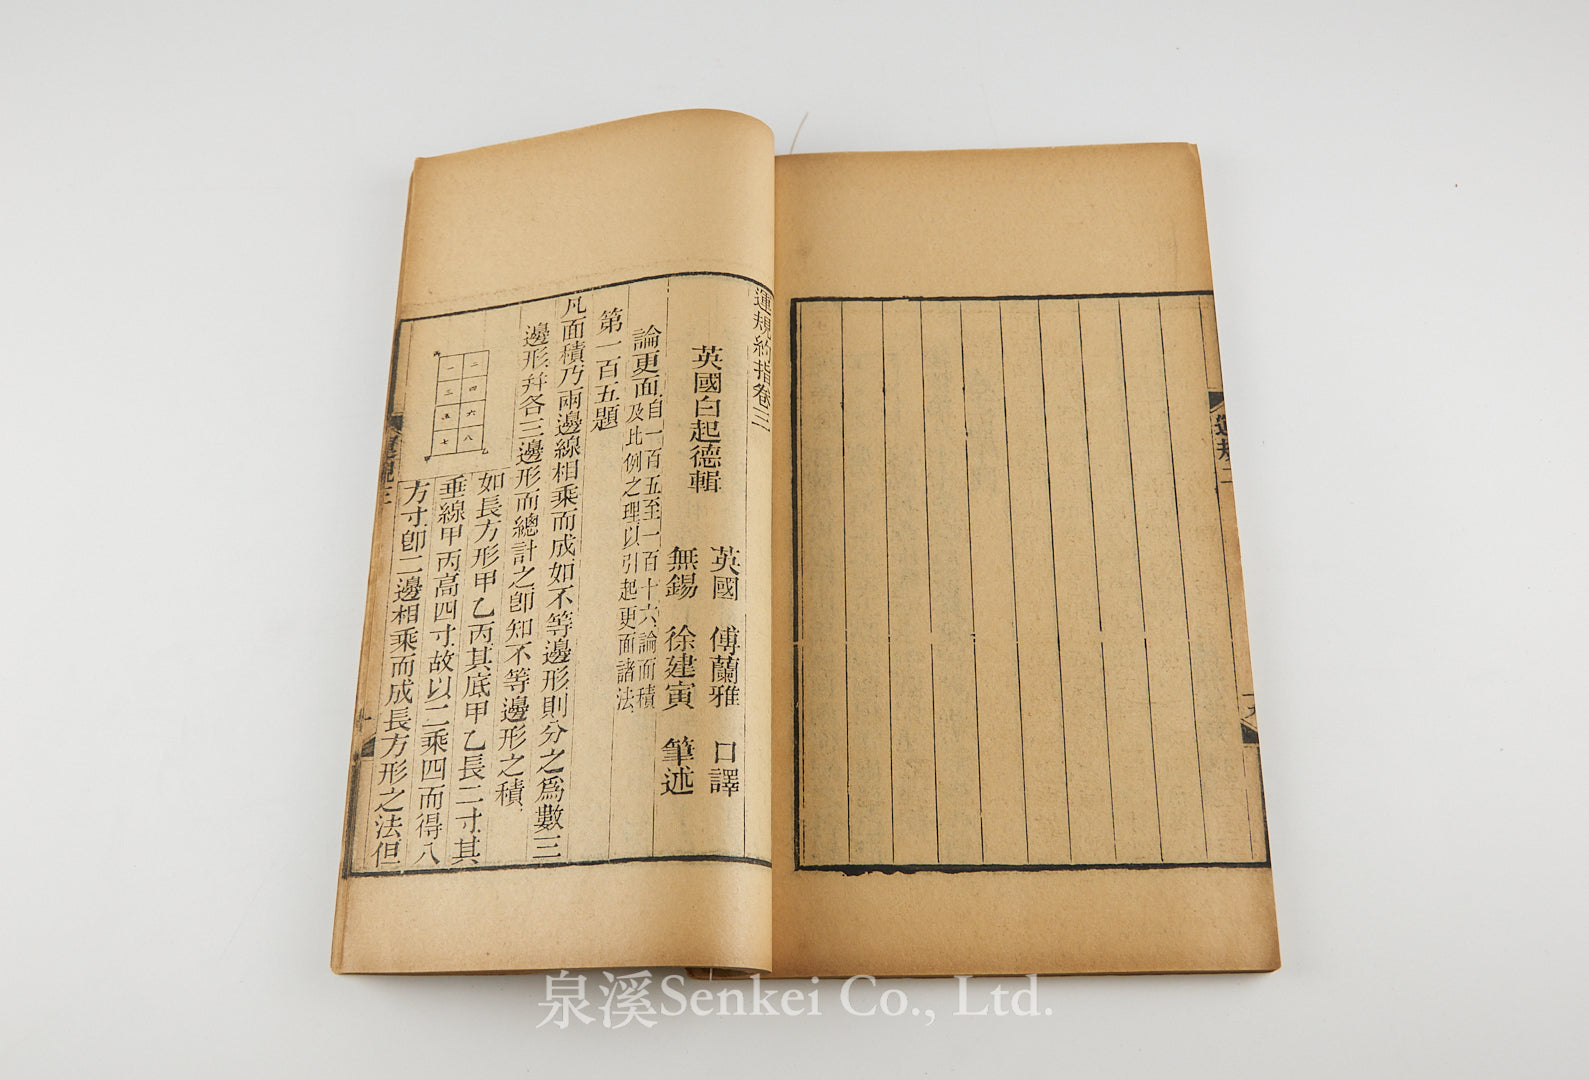 運規約指卷三
英國白起德輯
英國 傅蘭雅 口譯
無錫 徐建寅 筆述
論更面自一百五至一百十六論面積
及比例之理以引起更面諸法
第一百五題
凡面積乃兩邊線相乘而成如不等邊形則分之爲數三
邊形幷各三邊形而總計之卽知不等邊形之積
如長方形甲乙丙其底甲乙長二寸其
垂線甲丙高四寸故以二乘四而得八
方寸卽二邊相乘而成長方形之法但
丙
一 二
三 四
五 六
七 八
乙
運規三
運規二
泉溪Senkei Co., Ltd.